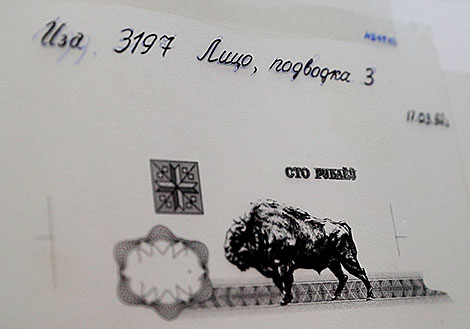 Иза. 3197 Лицо, подводка 3
17.03.92г.
СТО РУБЛЁЎ